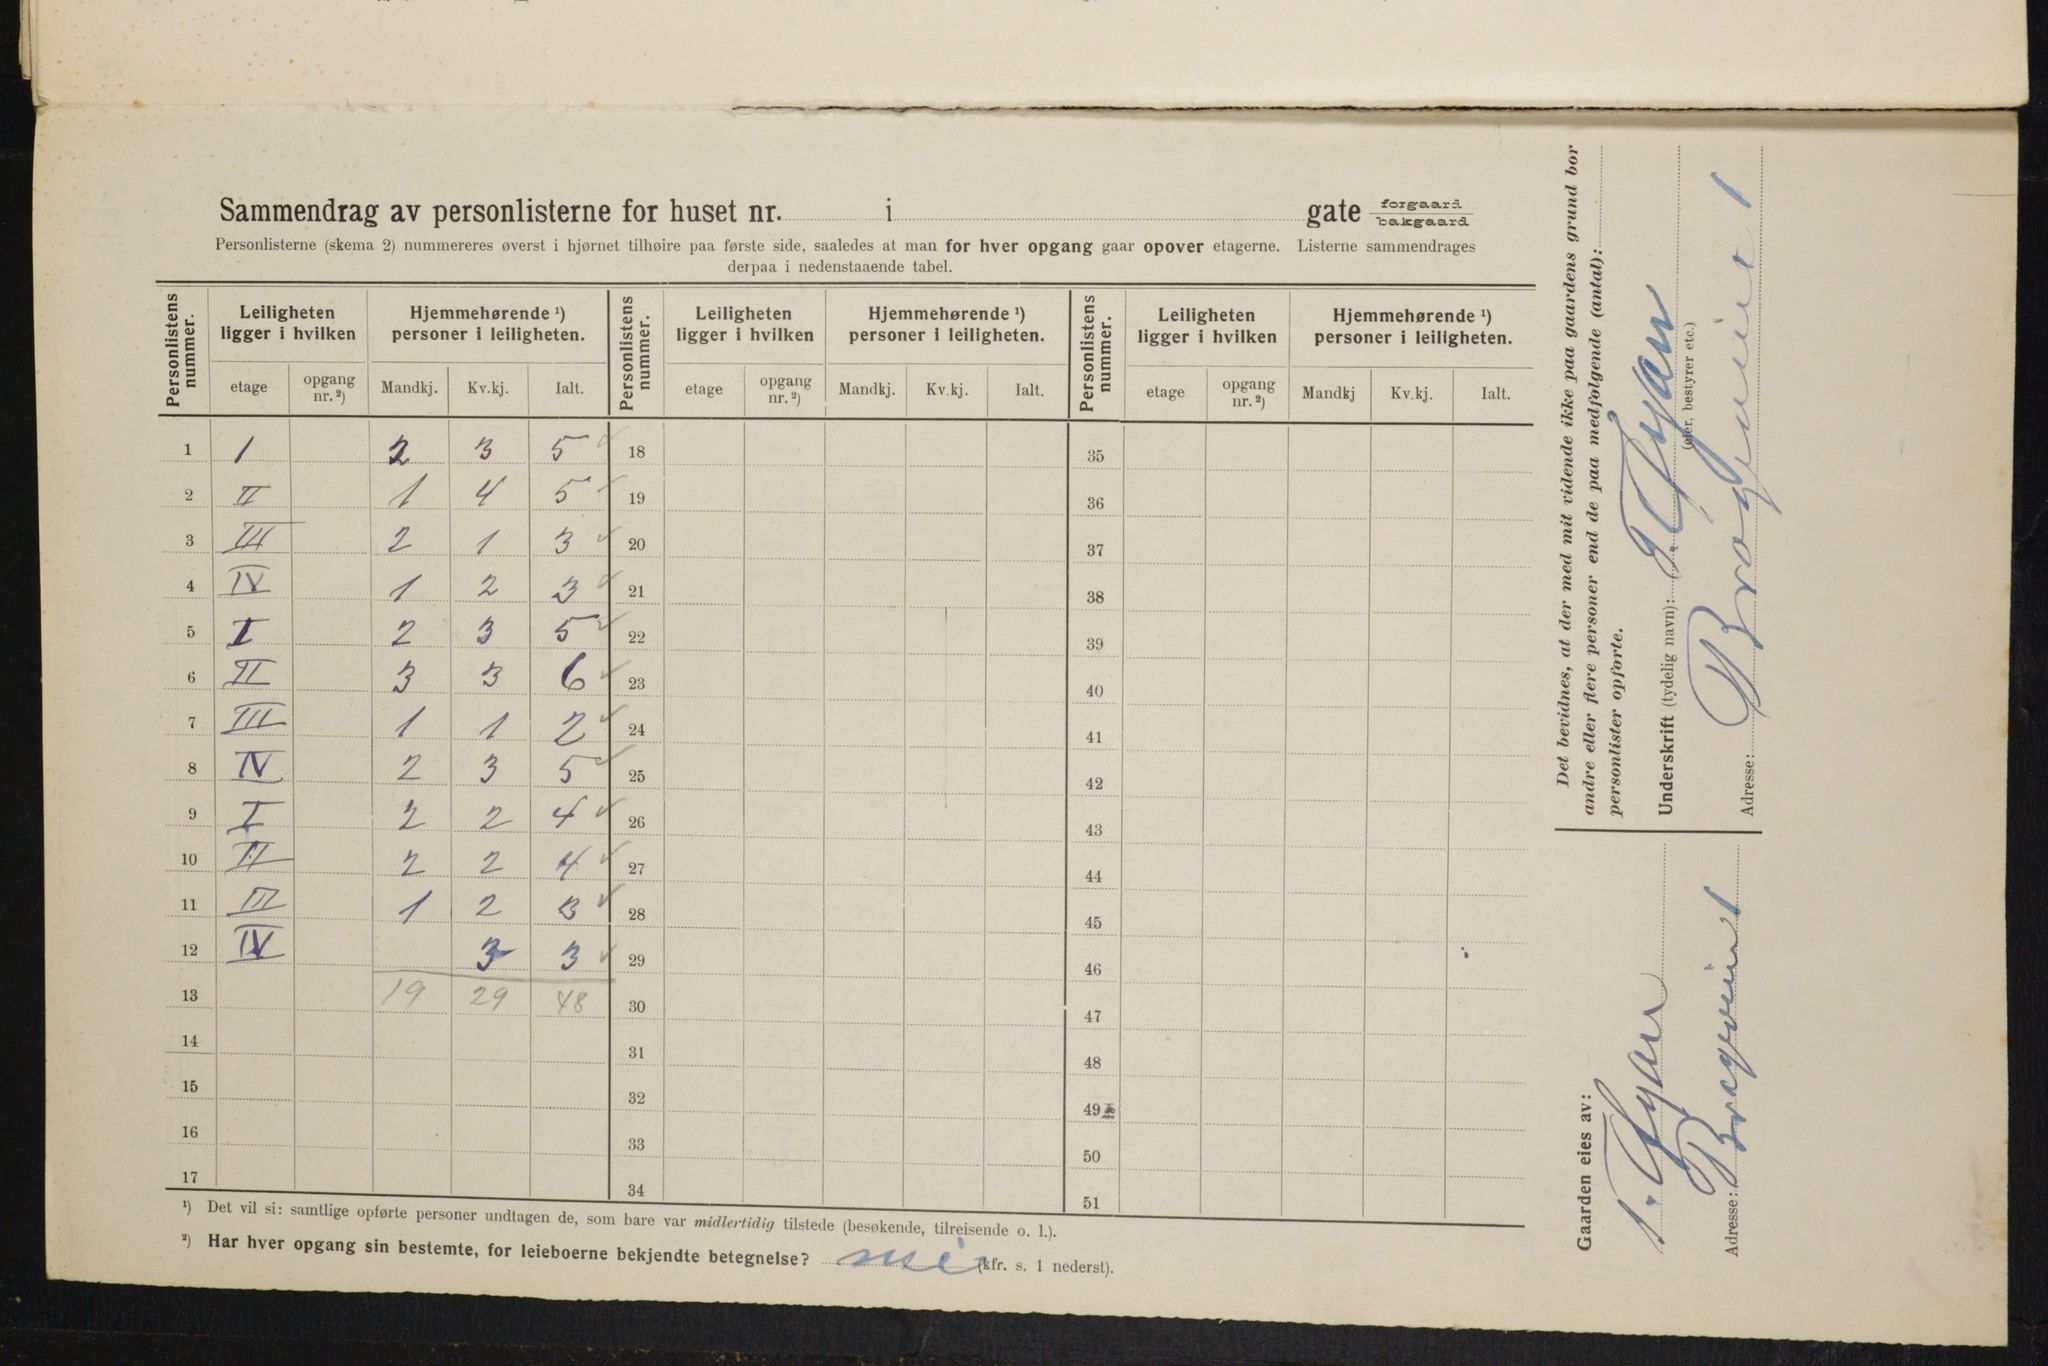 Sammendrag av personlisterne for huset nr. i gate forgaard bakgaard
Personlisterne (skema 2) nummereres øverst i hjørnet tilhøire paa første side, saaledes at man for hver opgang gaar opover etagerne. Listerne sammendrages
derpaa i nedenstaaende tabel.
Personlistens nummer. Leiligheten ligger i hvilken Hjemmehørende ¹) personer i leiligheten. Personlistens nummer. Leiligheten ligger i hvilken Hjemmehørende ¹) personer i leiligheten. Personlistens nummer. Leiligheten ligger i hvilken Hjemmehørende ¹) personer i leiligheten.
etage opgang nr. ²) Mandkj. Kv.kj. Ialt. etage opgang nr. ²) Mandkj. Kv.kj. Ialt. etage opgang nr. ²) Mandkj Kv.kj. Ialt.
1 I 2 3 5 ✓ 18 35
2 II 1 4 5 ✓ 19 36
3 III 2 1 3 ✓ 20 37
4 IV 1 2 3 ✓ 21 38
5 I 2 3 5 ✓ 22 39
6 II 3 3 6 ✓ 23 40
7 III 1 1 2 ✓ 24 41
8 IV 2 3 5 ✓ 25 42
9 I 2 2 4 ✓ 26 43
10 II 2 2 4 ✓ 27 44
11 III 1 2 3 ✓ 28 45
12 IV 3 3 ✓ 29 46
13 19 29 48 30 47
14 31 48
15 32 49
16 33 50
17 34 51
¹) Det vil si: samtlige opførte personer undtagen de, som bare var midlertidig tilstede (besøkende, tilreisende o. l.).
²) Har hver opgang sin bestemte, for leieboerne bekjendte betegnelse? (kfr. s. 1 nederst).
Det bevidnes, at der med mit vidende ikke paa gaardens grund bor
andre eller flere personer end de paa medfølgende (antal):
personlister opførte.
Underskrift (tydelig navn):
(eier, bestyrer etc.)
Adresse: 1
Gaarden eies av:
Adresse: 1